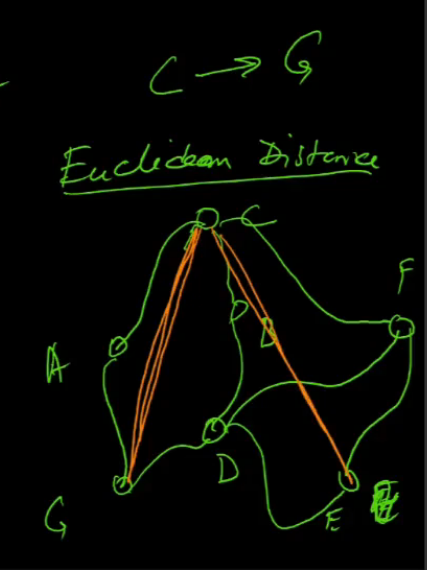 C → G
Euclidean Distance
C
F
D
A
D
G
E